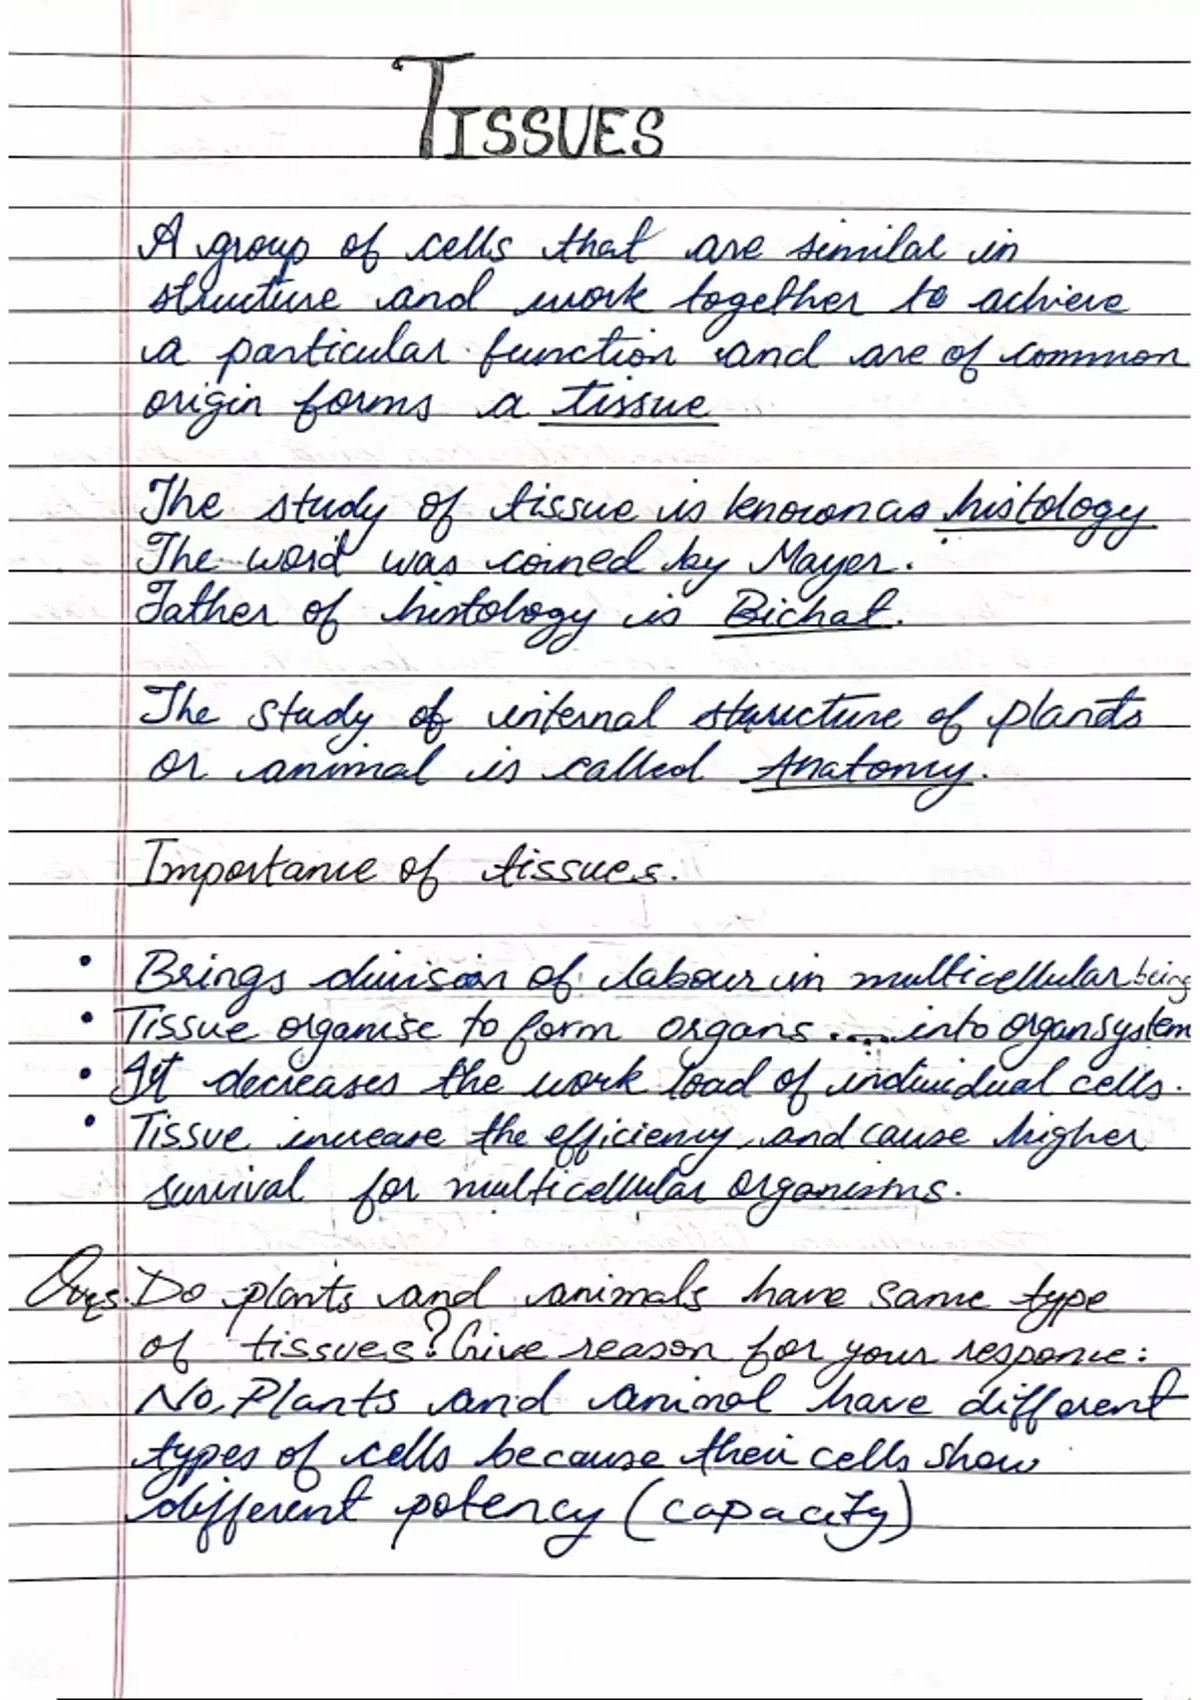 TISSUES
A group of cells that are similar in
structure and work together to achieve
a particular function and are of common
origin forms a tissue
The study of tissue is known as histology
The word was coined by Mayer.
Father of histology is Bichat.
The study of internal structure of plants
or animal is called Anatomy.
Importance of tissues.
• Brings division of labour in multicellular being
• Tissue organise to form organs .... into organsystem
• It decreases the work load of individual cells.
• Tissue increase the efficiency and cause higher
survival for multicellular organisms.
Ques. Do plants and animals have same type
of tissues? Give reason for your response:
No, Plants and animal have different
types of cells because their cells show
different potency (capacity)